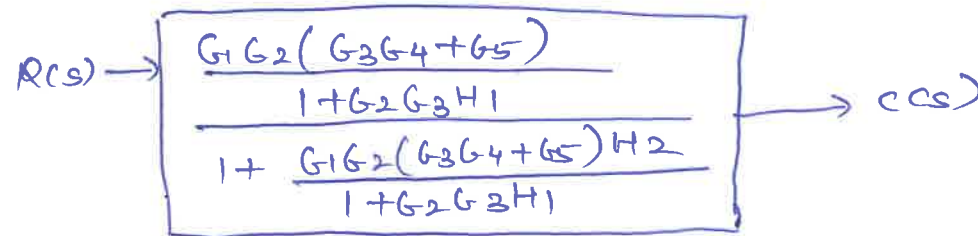 G1G2(G3G4+G5)
R(s) → 1+G2G3H1 → C(s)
1+ G1G2(G3G4+G5)H2
1+G2G3H1